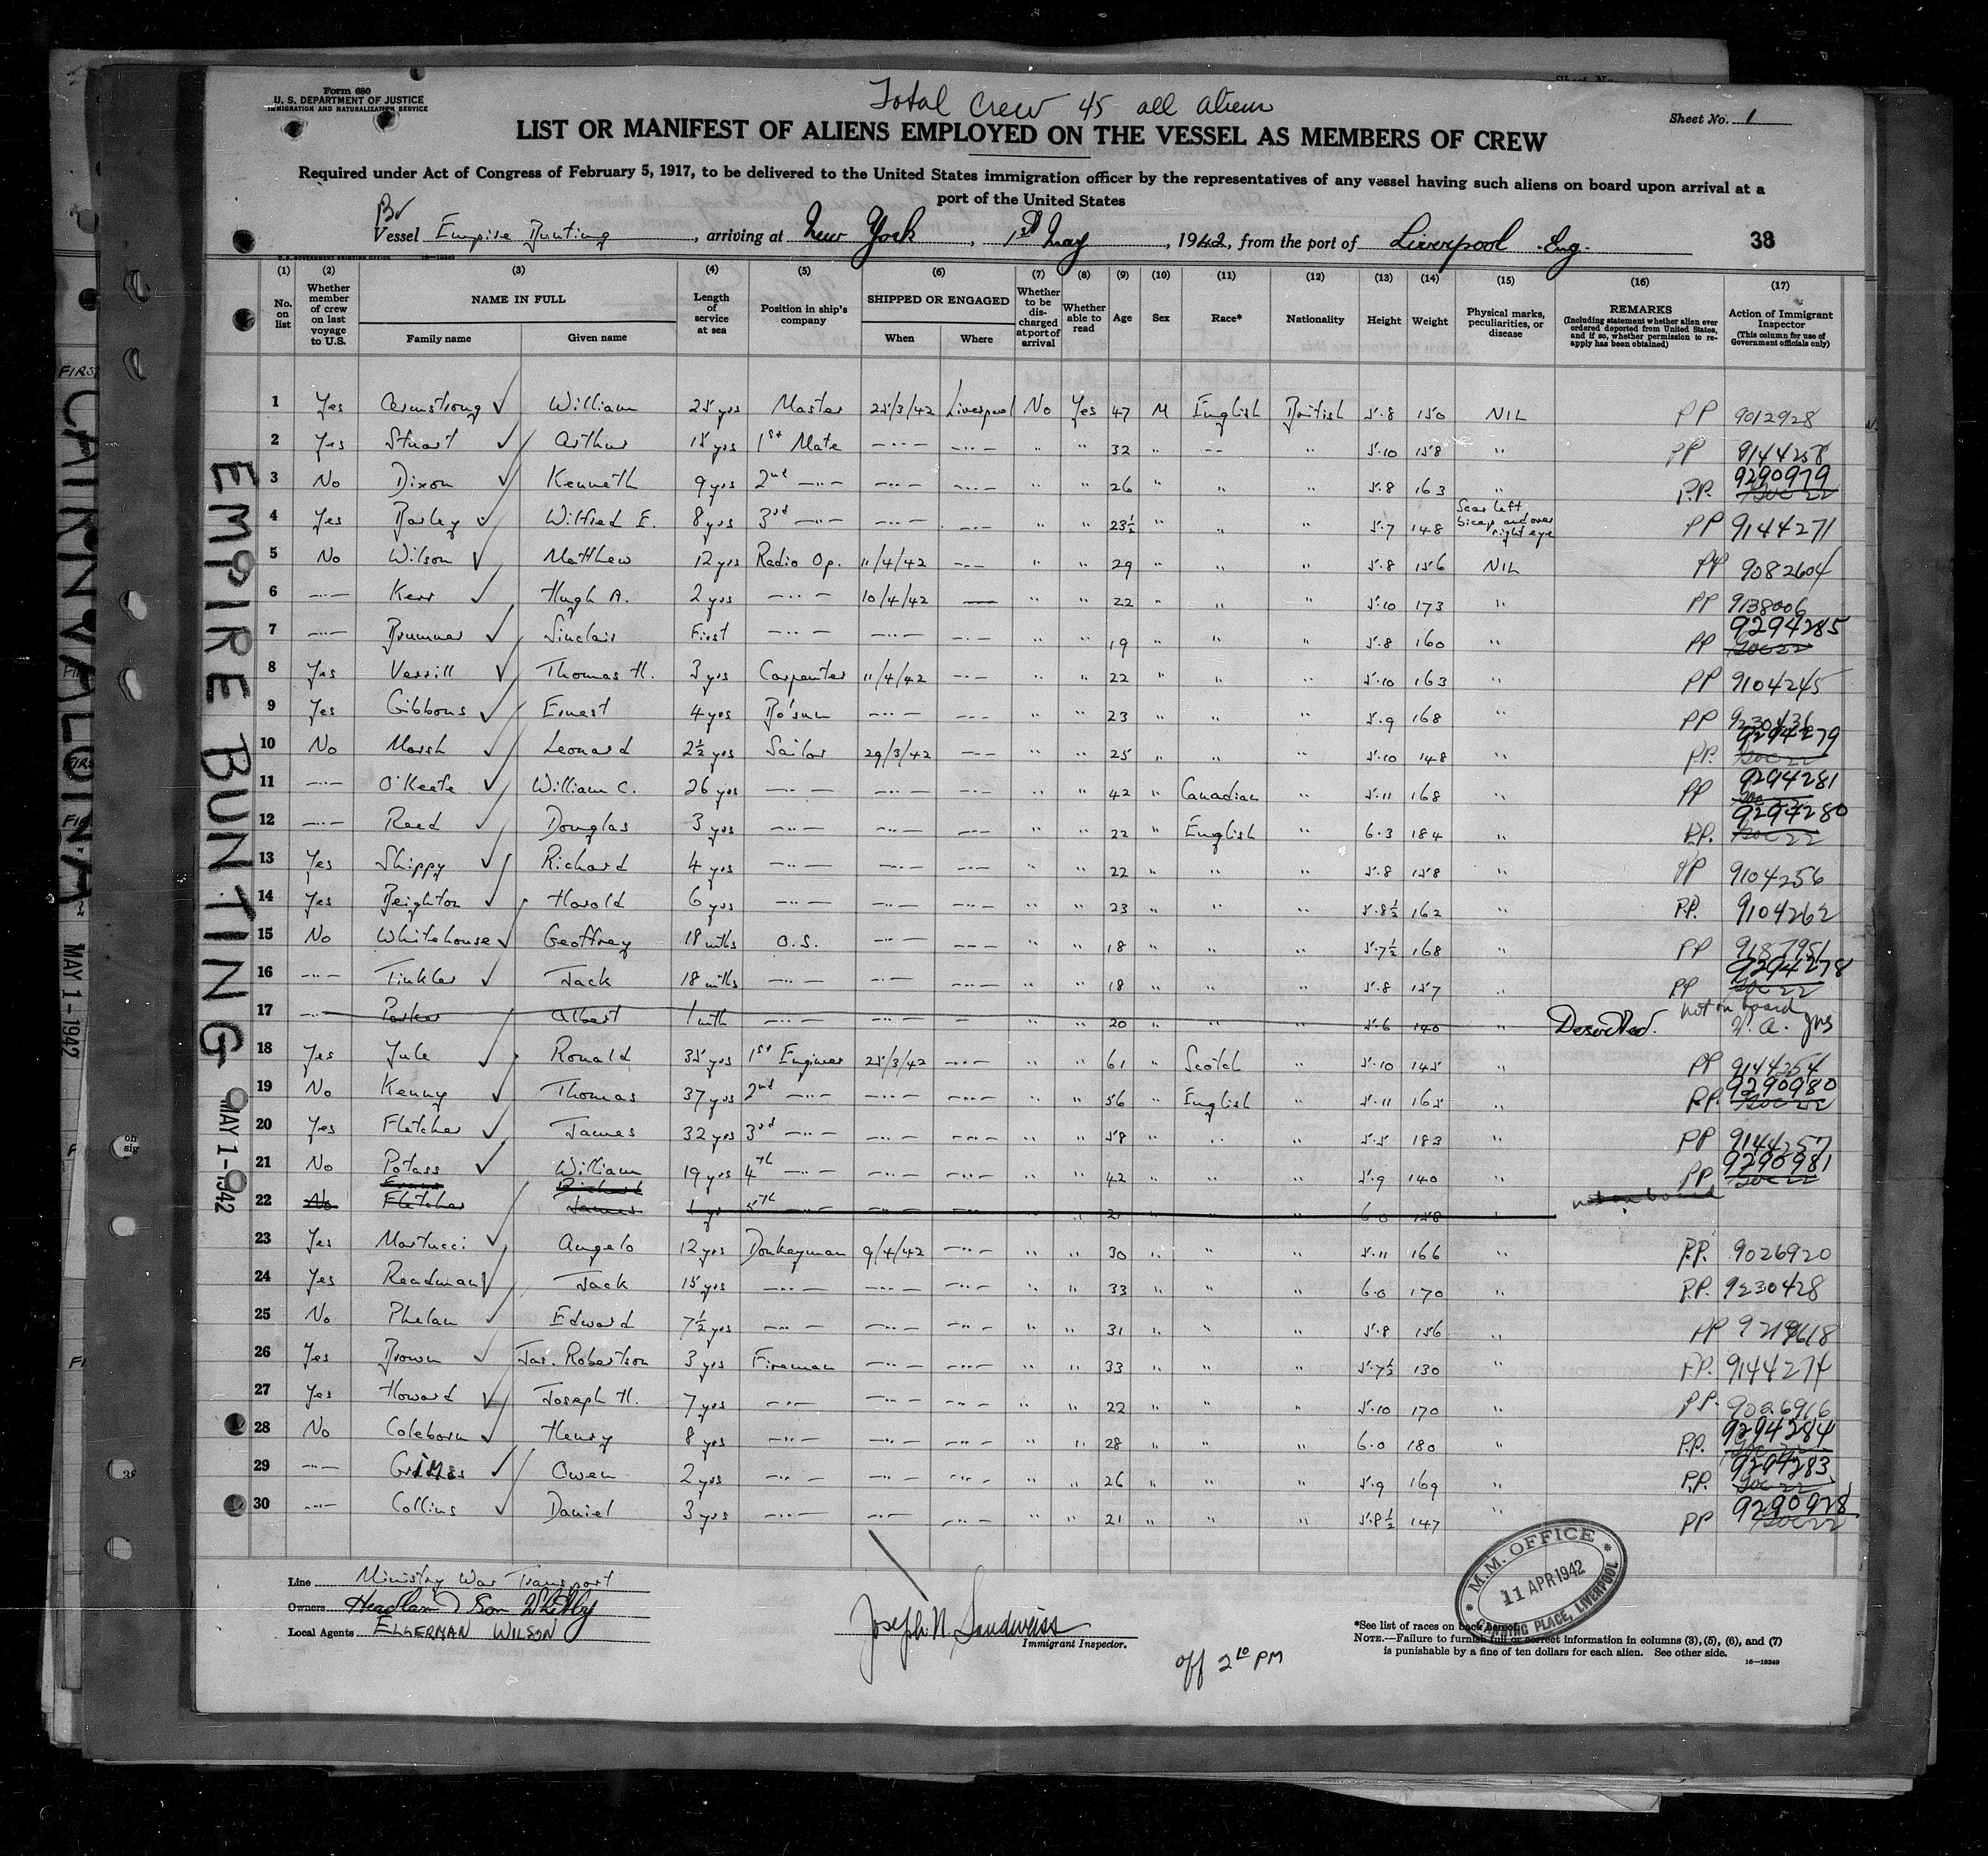 Form 680
U. S. DEPARTMENT OF JUSTICE
IMMIGRATION AND NATURALIZATION SERVICE
Total Crew 45 all aliens
Sheet No. 1
LIST OR MANIFEST OF ALIENS EMPLOYED ON THE VESSEL AS MEMBERS OF CREW
Required under Act of Congress of February 5, 1917, to be delivered to the United States immigration officer by the representatives of any vessel having such aliens on board upon arrival at a
port of the United States
Br
Vessel Empire Bunting, arriving at New York, 1st May, 1942, from the port of Liverpool Eng. 38
(1) (2) (3) (4) (5) (6) (7) (8) (9) (10) (11) (12) (13) (14) (15) (16) (17)
No. on list
Whether member of crew on last voyage to U.S.
NAME IN FULL
Family name
Given name
Length of service at sea
Position in ship's company
SHIPPED OR ENGAGED
When
Where
Whether to be discharged at port of arrival
Whether able to read
Age
Sex
Race*
Nationality
Height
Weight
Physical marks, peculiarities, or disease
REMARKS
(Including statement whether alien ever ordered deported from United States, and if so, whether permission to reapply has been obtained)
Action of Immigrant Inspector
(This column for use of Government officials only)
1 Yes Armstrong William 25 yrs Master 25/3/42 Liverpool No Yes 47 M English British 5.8 150 NIL PP 9012928
2 Yes Stuart Arthur 15 yrs 1st Mate —..— —..— " " 32 " —— " 5.10 158 " PP 9144258
3 No Dixon Kenneth 9 yrs 2nd —..— —..— —..— " " 26 " " " 5.8 163 " P.P. 9290979
4 Yes Barley Wilfred E. 8 yrs 3rd —..— —..— —..— " " 23½ " " " 5.7 148 Scar left bicep and over right eye PP 9144271
5 No Wilson Matthew 12 yrs Radio Op. 11/4/42 —..— " " 29 " " " 5.8 156 NIL PP 9082604
6 —..— Kerr Hugh A. 2 yrs —..— 10/4/42 —— " " 22 " " " 5.10 173 " PP 9138006
7 —..— Brummer Sinclair First —..— —..— —..— " " 19 " " " 5.8 160 " PP 9294285
8 Yes Verrill Thomas H. 3 yrs Carpenter 11/4/42 —..— " " 22 " " " 5.10 163 " PP 9104245
9 Yes Gibbons Ernest 4 yrs Bo'sun —..— —..— " " 23 " " " 5.9 168 " PP 9230436
10 No Marsh Leonard 2½ yrs Sailor 29/3/42 —..— " " 25 " " " 5.10 148 " P.P. 9294279
11 —..— O'Keefe William C. 26 yrs —..— —..— —..— " " 42 " Canadian " 5.11 168 " PP 9294281
12 —..— Reed Douglas 3 yrs —..— —..— —..— " " 22 " English " 6.3 184 " P.P. 9294280
13 Yes Shippy Richard 4 yrs —..— —..— —..— " " 22 " " " 5.8 158 " PP 9104256
14 Yes Beighton Harold 6 yrs —..— —..— —..— " " 23 " " " 5.8½ 162 " P.P. 9104262
15 No Whitehouse Geoffrey 18 mths O.S. —..— —..— " " 18 " " " 5.7½ 168 " PP 9187951
16 —..— Tinkler Jack 18 mths —..— —..— —..— " " 18 " " " 5.8 157 " PP 9294278
17 —..— Parker Albert 1 mth —..— —..— —..— " " 20 " " " 5.6 140 " Deserted. not on board
18 Yes Yule Ronald 35 yrs 1st Engineer 25/3/42 —..— " " 61 " Scotch " 5.10 145 " PP 9144254
19 No Kenny Thomas 37 yrs 2nd —..— —..— —..— " " 56 " English " 5.11 165 " P.P. 9290980
20 Yes Fletcher James 32 yrs 3rd —..— —..— —..— " " 58 " " " 5.5 183 " PP 9144257
21 No Potass William 19 yrs 4th —..— —..— —..— " " 42 " " " 5.9 140 " PP 9290981
Evans Richard
22 No Fletcher James 1 yr 5th —..— —..— —..— " " 21 " " " 6.0 158 " not on board
23 Yes Martucci Angelo 12 yrs Donkeyman 9/4/42 —..— " " 30 " " " 5.11 166 " P.P. 9026920
24 Yes Readman Jack 15 yrs —..— —..— —..— " " 33 " " " 6.0 170 " P.P. 9230428
25 No Phelan Edward 7½ yrs —..— —..— —..— " " 31 " " " 5.8 156 " PP
26 Yes Brown Jas. Robertson 3 yrs Fireman —..— —..— " " 33 " " " 5.7½ 130 " P.P. 9144274
27 Yes Howard Joseph H. 7 yrs —..— —..— —..— " " 22 " " " 5.10 170 " PP. 9026916
28 No Coleborn Henry 8 yrs —..— —..— —..— " " 28 " " " 6.0 180 " P.P. 9294284
29 —..— Grimes Owen 2 yrs —..— —..— —..— " " 26 " " " 5.9 169 " P.P. 9294283
30 —..— Collins Daniel 3 yrs —..— —..— —..— " " 21 " " " 5.8½ 147 " PP 9290928
Line Ministry War Transport
Owners Headlam & Son Whitby
Local Agents ELLERMAN WILSON
Joseph N. Sandweiss
Immigrant Inspector.
off 2 10 PM
M.M. OFFICE
11 APR 1942
CANNING PLACE, LIVERPOOL
*See list of races on back hereof.
NOTE.—Failure to furnish full or correct information in columns (3), (5), (6), and (7)
is punishable by a fine of ten dollars for each alien. See other side.
16—19349
EMPIRE BUNTING
MAY 1-1942
CAIRNVALONA
MAY 1-1942